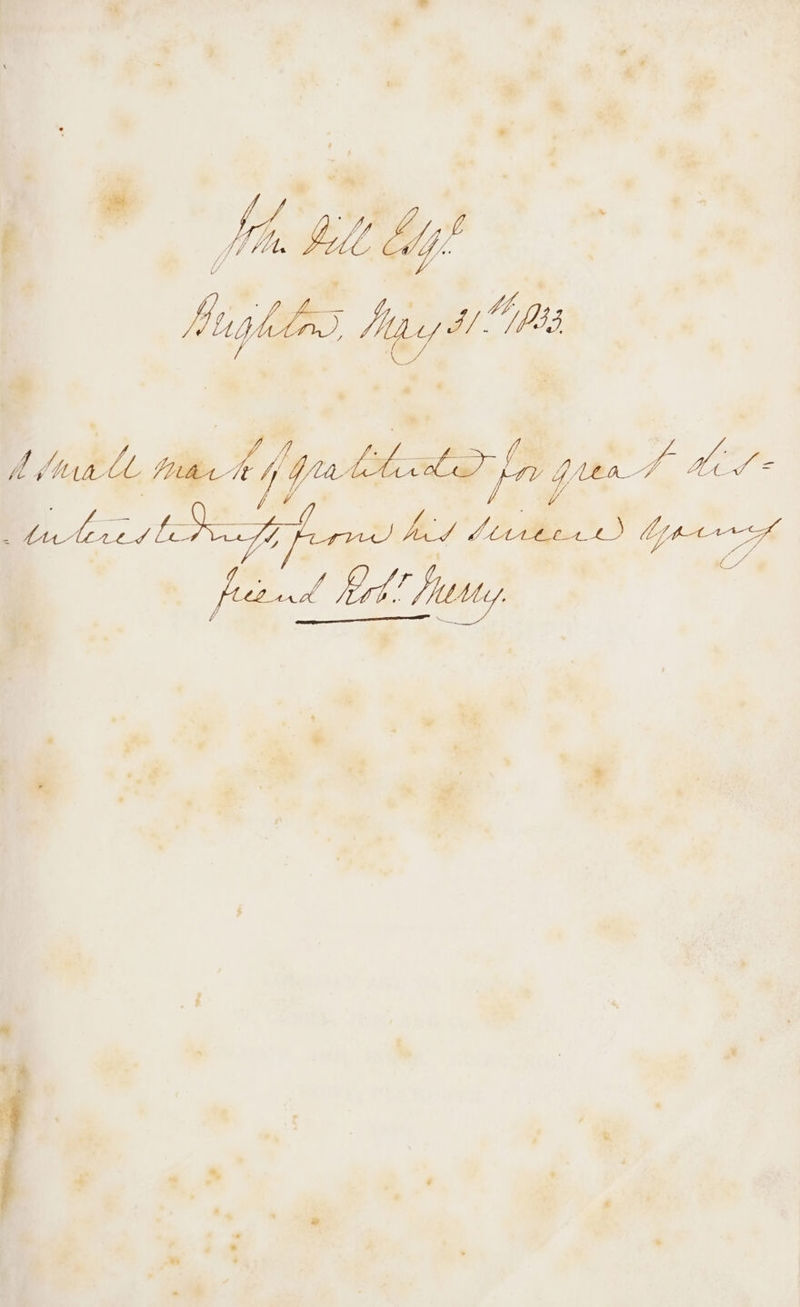 Jno. Gill Esqr.
Brighton, May 31.st 1833.
A small mark of gratitude for great dis=
-interestedness, from his sincere young
friend Robt.